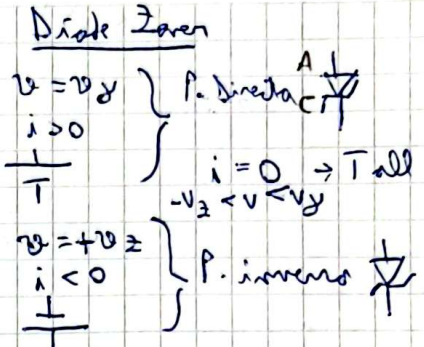 Diode Zener
v = vγ
i > 0
P. Directa
A
C
i = 0 → T all
-Vz < v < vγ
v = +vz
i < 0
P. inversa